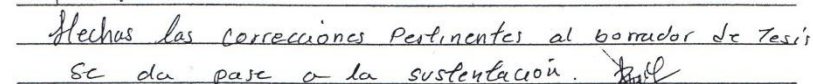 Hechas las correcciones Pertinentes al borrador de Tesis
se da pase a la sustentación.